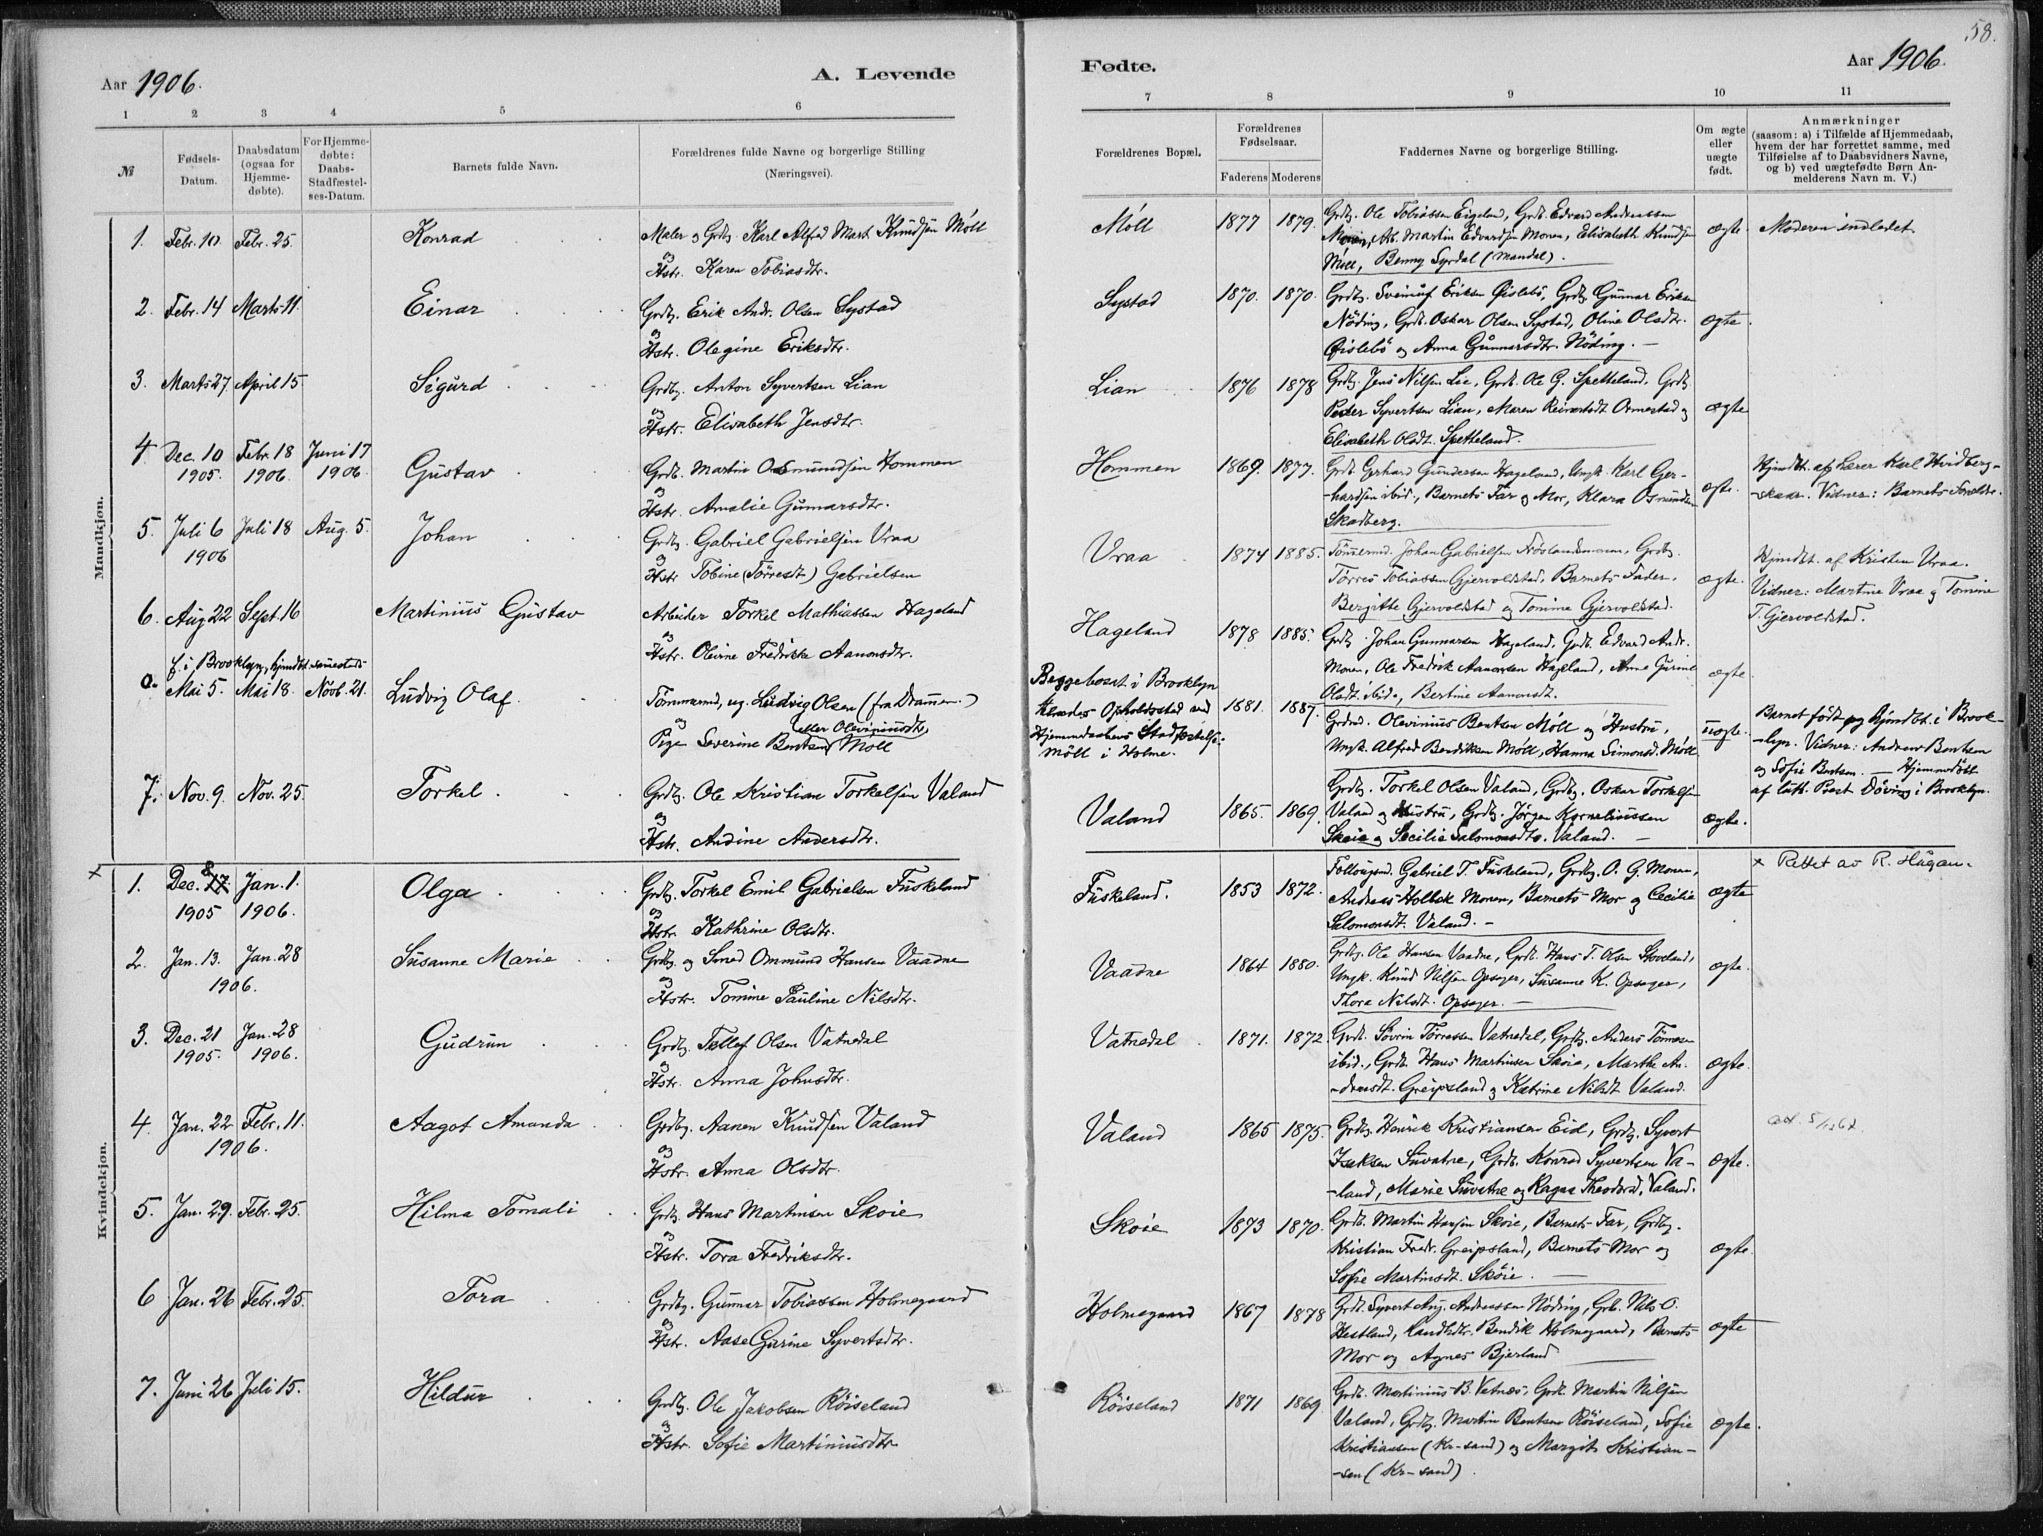 58.
Aar 1906.
A. Levende
Fødte.
Aar 1906.
1 2 3 4 5 6 7 8 9 10 11
№
Fødsels-Datum.
Daabsdatum (ogsaa for Hjemme-døbte).
For Hjemme-døbte: Daabs-Stadfæstel-ses-Datum.
Barnets fulde Navn.
Forældrenes fulde Navne og borgerlige Stilling (Næringsvei).
Forældrenes Bopæl.
Forældrenes Fødselsaar.
Faderens Moderens
Faddernes Navne og borgerlige Stilling.
Om ægte eller uægte født.
Anmærkninger
(saasom: a) i Tilfælde af Hjemmedaab,
hvem der har forrettet samme, med
Tilføielse af to Daabsvidners Navne,
og b) ved uægtefødte Børn An-
melderens Navn m. V.)
Mandkjøn.
1. Febr. 10. Febr. 25. Konrad
Maler og Grdbg. Karl Alfred Knudsen Möll
og
Hstr. Karen Tobiasdtr.
Möll 1877 1879.
Grdbg. Ole Tobiassen Eigeland, Grdb. Edvard Andreassen
Monen, Martin Edvardsen Monen, Elisabeth Knudsen
Möll, Benny Syrdal (Mandal).
ægte. Moderen indledet.
2. Febr. 14 Marts 11. Einar
Grdbg. Erik Andr. Olsen Systad
og
Hstr. Olegine Eriksdtr.
Systad 1870. 1870.
Grdbg. Eriksen Øislebö, Grdbg. Gunnar Eriksen
Nöding, Grdb. Oskar Olsen Systad, Oline Olsdtr.
Øislebö og Anna Gunnarsdtr. Nöding. —
ægte.
3. Marts 27. April 15 Sigurd
Grdbg. Anton Syvertsen Lian
og
Hstr. Elisabeth Jensdtr.
Lian 1876 1878
Grdbg. Jens Nilsen Lie, Grdb. Ole G. Spetteland, Grdbg.
Peder Syvertsen Lian, Maren Ormestad og
Elisabeth Olsdt. Spetteland.
ægte
4 Dec. 10 1905. Febr. 18 1906. Juni 17 1906. Gustav
Grdb. Martin Osmundsen Hommen
og
Hstr. Amalie Gunnarsdtr.
Hommen 1869. 1877.
Grdb. Gerhard Gundersen Hageland, Ungk. Karl Ger-
-hardsen ibid., Barnets Far og Mor, Klara Osmundsen
Skadberg.
ægte.
Hjmdbt. af Lærer Karl Hvidberg-
-skaar. Vidner: Barnets Forældre.
5. Juli 6 1906 Juli 18 Aug. 5. Johan
Grdbg. Gabriel Gabrielsen Vraa
og
Hstr. Tobine (Törresdt.) Gabrielsen
Vraa 1874 1885.
Tömmermd. Johan Gabrielsen Nörlandsmoen, Grdbg.
Törres Tobiassen Gjervoldstad, Barnets Fader,
Bergitte Gjervoldstad og Tomine Gjervoldstad.
ægte.
Hjmdbt. af Kristen Vraa.
Vidner: Martine Vraa og Tomine
T. Gjervoldstad.
6. Aug. 22 Sept. 16 Martinius Gustav
Arbeider Torkel Mathiassen Hageland
og
Hstr. Olevine Fredrikke Aanonsdtr.
Hageland 1878 1885.
Grdbg. Johan Gunnarsen Hageland, Grdb. Edvard Andr.
Monen, Ole Fredrik Aanonsen Hageland, Anne Gurine
Olsdt. ibid., Bertine Aanonsdt.
ægte.
0. f. i Brooklyn, hjmdbt. sammesteds
Mai 5. Mai 18. Novb. 21. Ludvig Olaf.
Tömmermd, ug. Ludvig Olsen (fra Drammen.)
og
eller Oleviniusdtr.
Pige Severine Bentsen Möll
Begge bosat i Brooklyn
Opholdssted ved
Hjemmedaabens Stadfæstelse:
Möll i Holme.
1881. 1887.
Grdmd. Olevinius Bentsen Möll og Hustru,
Ungk. Alfred Bendiksen Möll, Hanna Simonsd. Möll
uægte.
Barnet född og hjmdbt. i Brook-
-lyn. Vidner: Andrew Bentsen
og Sofie Bentsen. — Hjemmedöbt
af luth. Præst Döving i Brooklyn.
7. Nov. 9. Nov. 25. Torkel
Grdbg. Ole Kristian Torkelsen Valand
og
Hstr. Andine Andersdtr.
Valand 1865. 1869.
Grdbg. Torkel Olsen Valand, Grdbg. Oskar Torkelsen
Valand og Hustru, Grdbg. Jörgen Korneliussen
Skoie og Secilie Salomonsdtr. Valand. —
ægte.
Kvindekjøn.
x
1. Dec. 8 17 1905 Jan. 1. 1906. Olga
Grdbg. Torkel Emil Gabrielsen Fuskeland
og
Hstr. Kathrine Olsdtr.
Fuskeland. 1853 1872.
Gabriel T. Fuskeland, Grdbg. O. G. Monen,
Andreas Holbek Monen, Barnets Mor og Cecilie
Salomonsdt. Valand. —
ægte
x Rettet av R. Hågan.
2. Jan. 13. Jan. 28 1906. Susanne Marie
Grdbg. og Smed Ommund Hansen Vaadne
og
Hstr. Tomine Pauline Nilsdtr.
Vaadne 1864 1880.
Grdbg. Ole Hansen Vaadne, Grdb. Hans T. Olsen Stoveland,
Ungk. Knud Nilsen Opsager, Susanne K. Opsager,
Thora Nilsdt. Opsager. —
ægte.
3. Dec. 21 1905. Jan. 28 1906. Gudrun
Grdbg. Tellef Olsen Vatnedal
og
Hstr. Anna Johnsdtr.
Vatnedal 1871. 1872
Grdb. Sövrin Törressen Vatnedal, Grdbg. Anders Tönnesen
ibid., Grdb. Hans Martinsen Skoie, Marthe An-
-dreasdt. Greipsland og Katrine Nilsdt. Valand.
ægte.
4. Jan. 22 Febr. 11. 1906. Aagot Amanda
Grdbg. Aanen Knudsen Valand
og
Hstr. Anna Olsdtr.
Valand 1865 1875.
Grdbg. Henrik Kristiansen Eid, Grdbg. Syvert
Isaksen Suvatne, Grdb. Konrad Syvertsen Va-
-land, Marie Suvatne og Ragna Theodorsd. Valand.
ægte.
5. Jan. 29. Febr. 25. Hilma Tomali
Grdbg. Hans Martinsen Skoie
og
Hstr. Tora Fredriksdtr.
Skoie 1873 1870.
Grdb. Martin Hansen Skoie, Barnets Far, Grdbg.
Kristian Fredr. Greipsland, Barnets Mor og
Sofie Martinsdt. Skoie. —
ægte.
6 Jan. 26 Febr. 25. Tora
Grdbg. Gunnar Tobiassen Holmegaard
og
Hstr. Aase Gurine Syvertsdtr.
Holmegaard 1867 1878
Grdb. Syvert Aug. Andreassen Nöding, Grb. Nils O.
Hestland, Landhdlr. Bendik Holmegaard, Barnets
Mor og Agnes Bjerland
ægte
7. Juni 26 Juli 15. Hildur
Grdbg. Ole Jakobsen Röiseland
og
Hstr. Sofie Martiniusdtr.
Röiseland 1871 1869.
Grdb. Martinius B. Vatnes, Grdb. Martin Nilsen
Valand, Grdbg. Martin Bentsen Röiseland, Sofie
Kristiansen (Kr-sand) og Margit Kristian-
-sen (Kr-sand).
ægte.